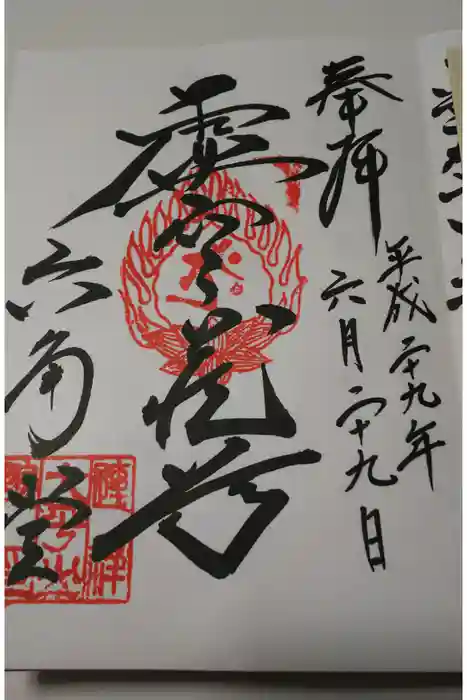 奉拝
平成二十九年
六月二十九日
虚空蔵尊
六角堂